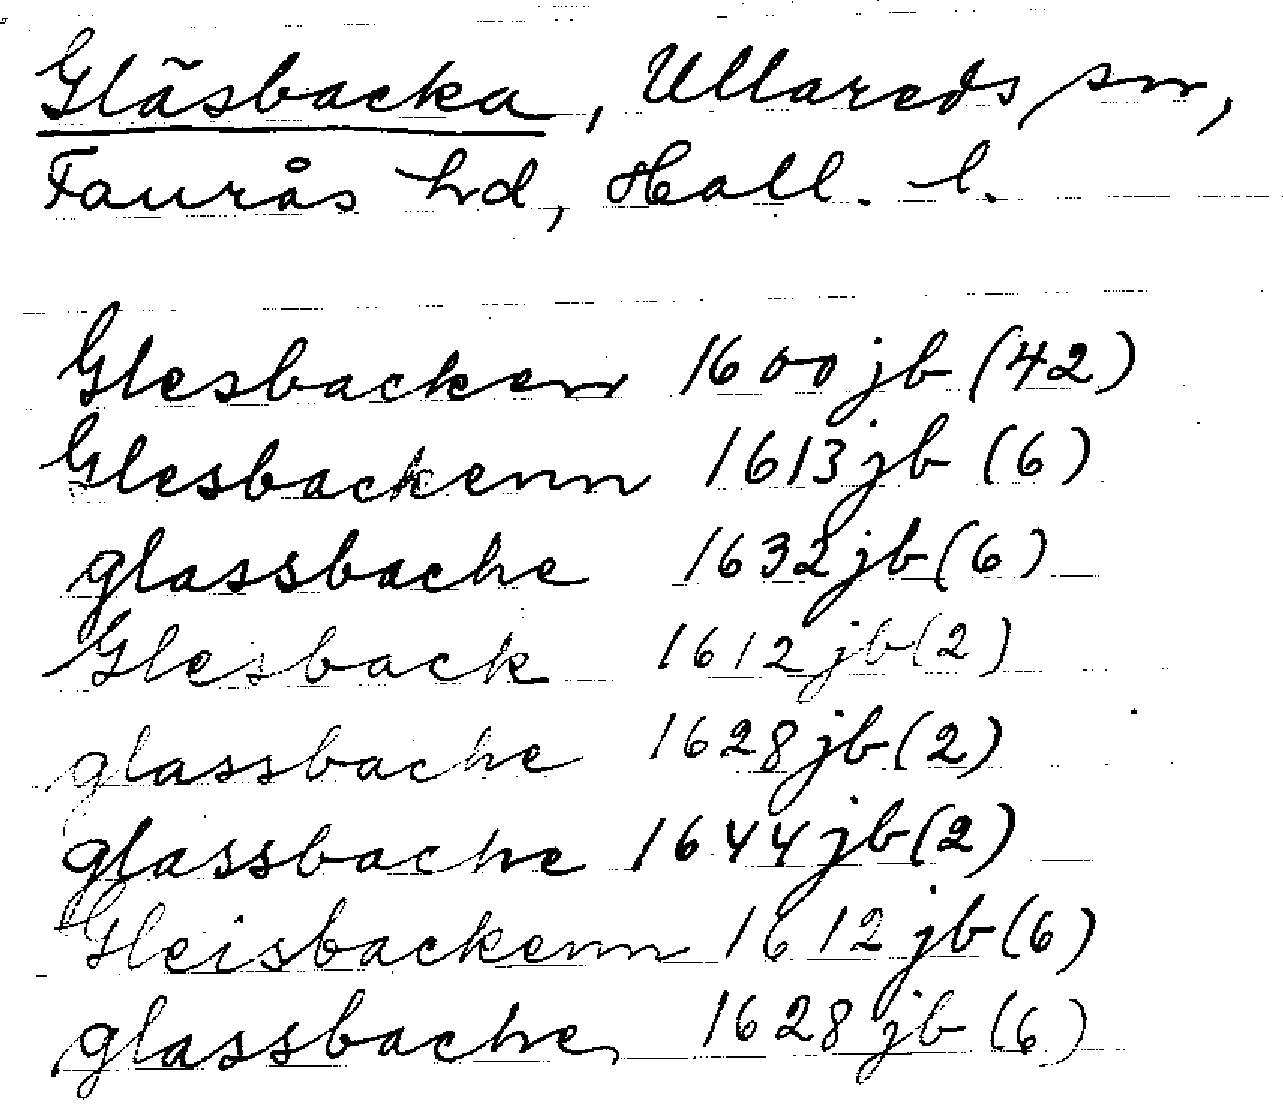 Gläsbacka, Ullareds sn,
Faurås hd, Hall. l.
Glesbacken 1600 jb (42)
Glesbackenn 1613 jb (6)
glassbache 1632 jb (6)
Glesback 1612 jb (2)
glassbache 1628 jb (2)
glassbache 1644 jb (2)
Gleisbackenn 1612 jb (6)
glassbache 1628 jb (6)